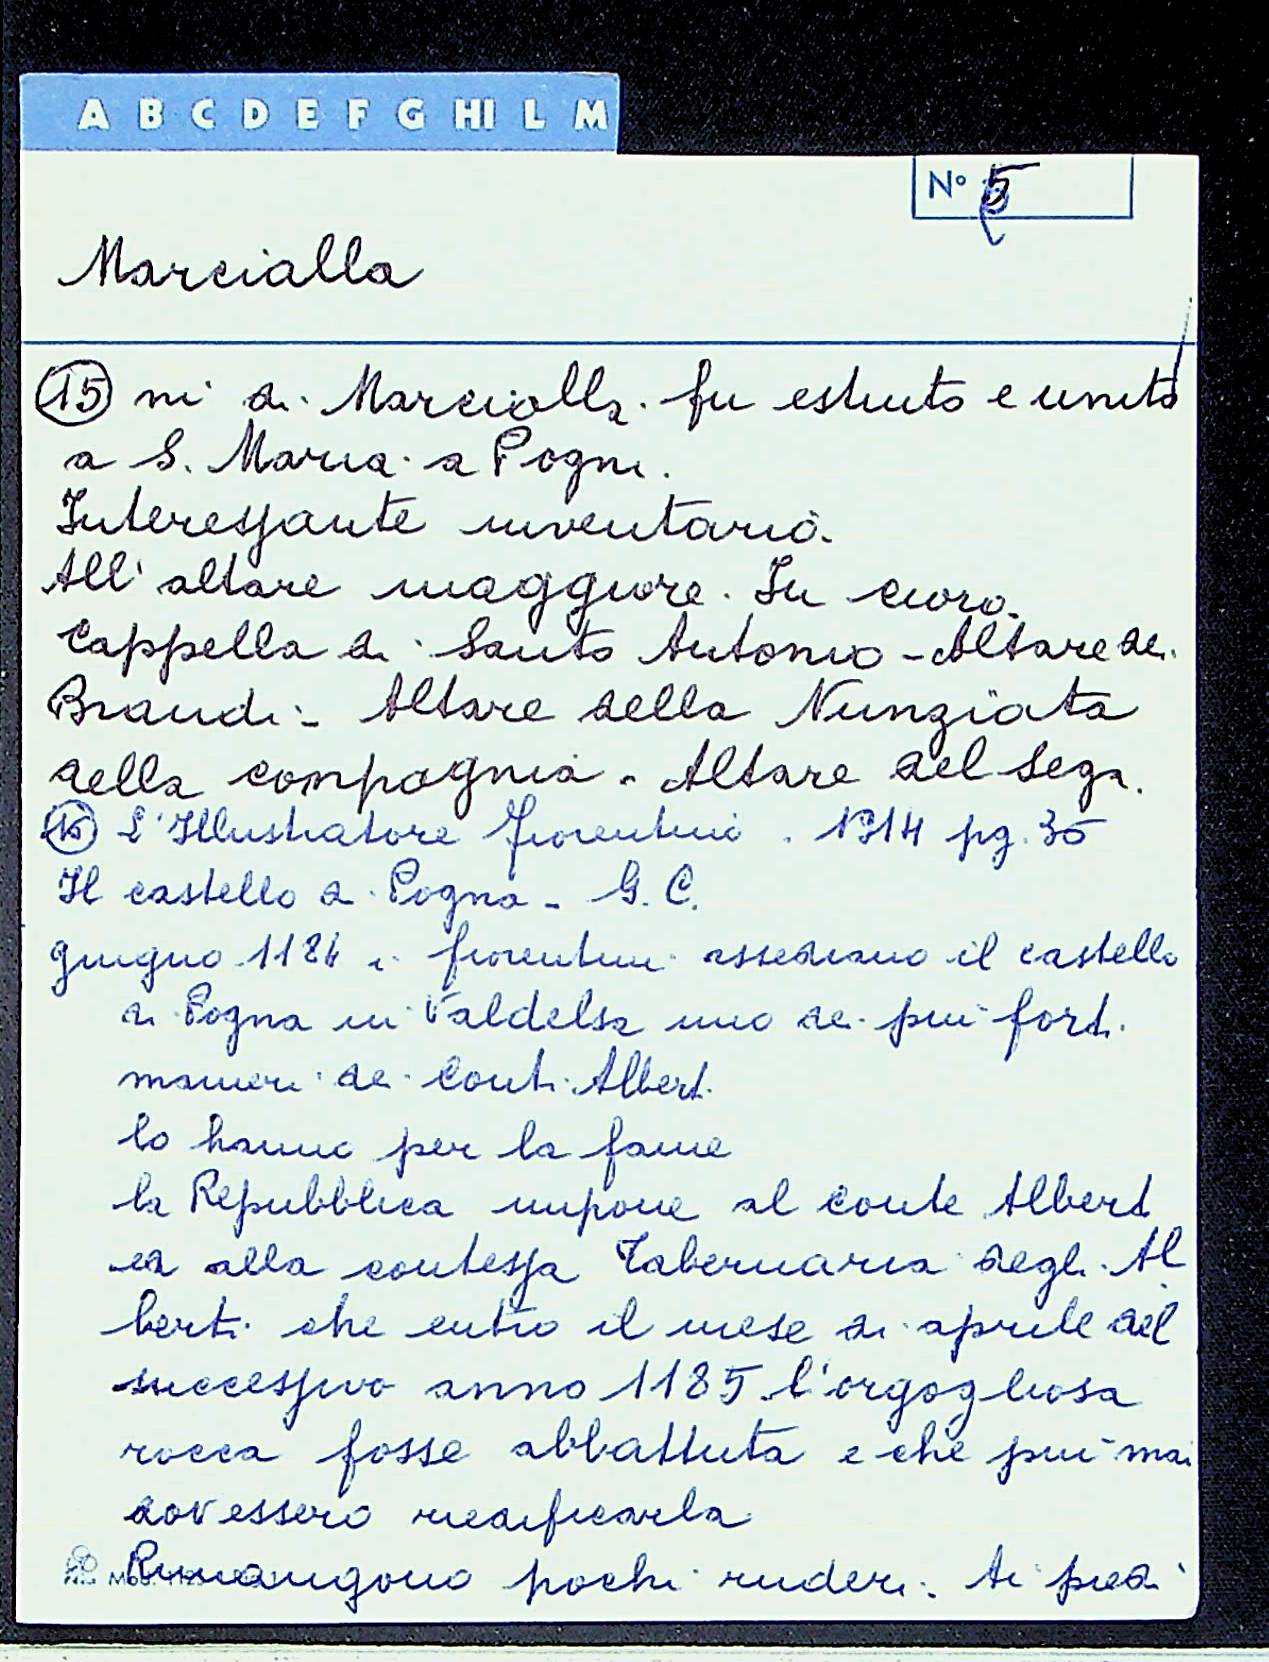 A B C D E F G HI L M
N° 5
Marcialla
15 ni di Marcialla fu estinto e unito
a S. Maria a Pogni.
Interessante inventario.
All'altare maggiore. In coro.
Cappella di Santo Antonio - Altare dei
Brandi - Altare della Nunziata
della compagnia - Altare del Sega.
L'Illustratore fiorentino. 1914 pg. 35
Il castello di Pogna - G. C.
giugno 1184 i fiorentini assediano il castello
di Pogna in Valdelsa uno dei più forti
manieri dei Conti Alberti
lo hanno per la fame
la Repubblica impone al conte Alberto
ed alla contessa Tabernaria degli Al
berti che entro il mese di aprile del
successivo anno 1185 l'orgogliosa
rocca fosse abbattuta e che più mai
dovessero riedificarla
Rimangono pochi ruderi. Ai piedi